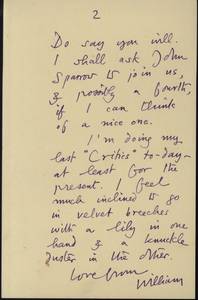 2
Do say you will.
I shall ask John
Sparrow to join us,
& possibly a fourth,
if I can think
of a nice one.
I'm doing my
last "Critics" to-day –
at least for the
present. I feel
much inclined to go
in velvet breeches
with a lily in one
hand & a knuckle
duster in the other.
Love from
William